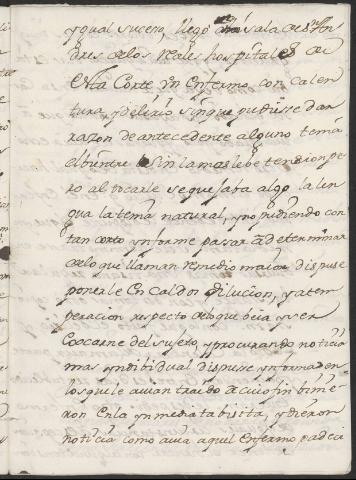 y gual suceso, llegó a la sala de Sn An
dres de los Reales hospitales de
esta Corte Vn Enfermo con calen
tura, y delirio sinque pudiesse dar
razon de antecedente alguno tenia
el bientre sin la mas lebe tension pe
ro al tocarle se quejaba algo la len
gua la tenia natural, y no pudiendo con
tan corto ynforme pasar a determinar
delo que llaman remedio maior dispuse
ponerle en caldo dilucion, y atem
peracion respecto de lo que beia y ser
Cocacne del sujeto, y procurando noticia
mas yndibidual dispuse ynformaden
los que le auian traido a cuio fin binie
ron en la ynmediata bisita, y dieron
noticia como auia aquel enfermo padeci